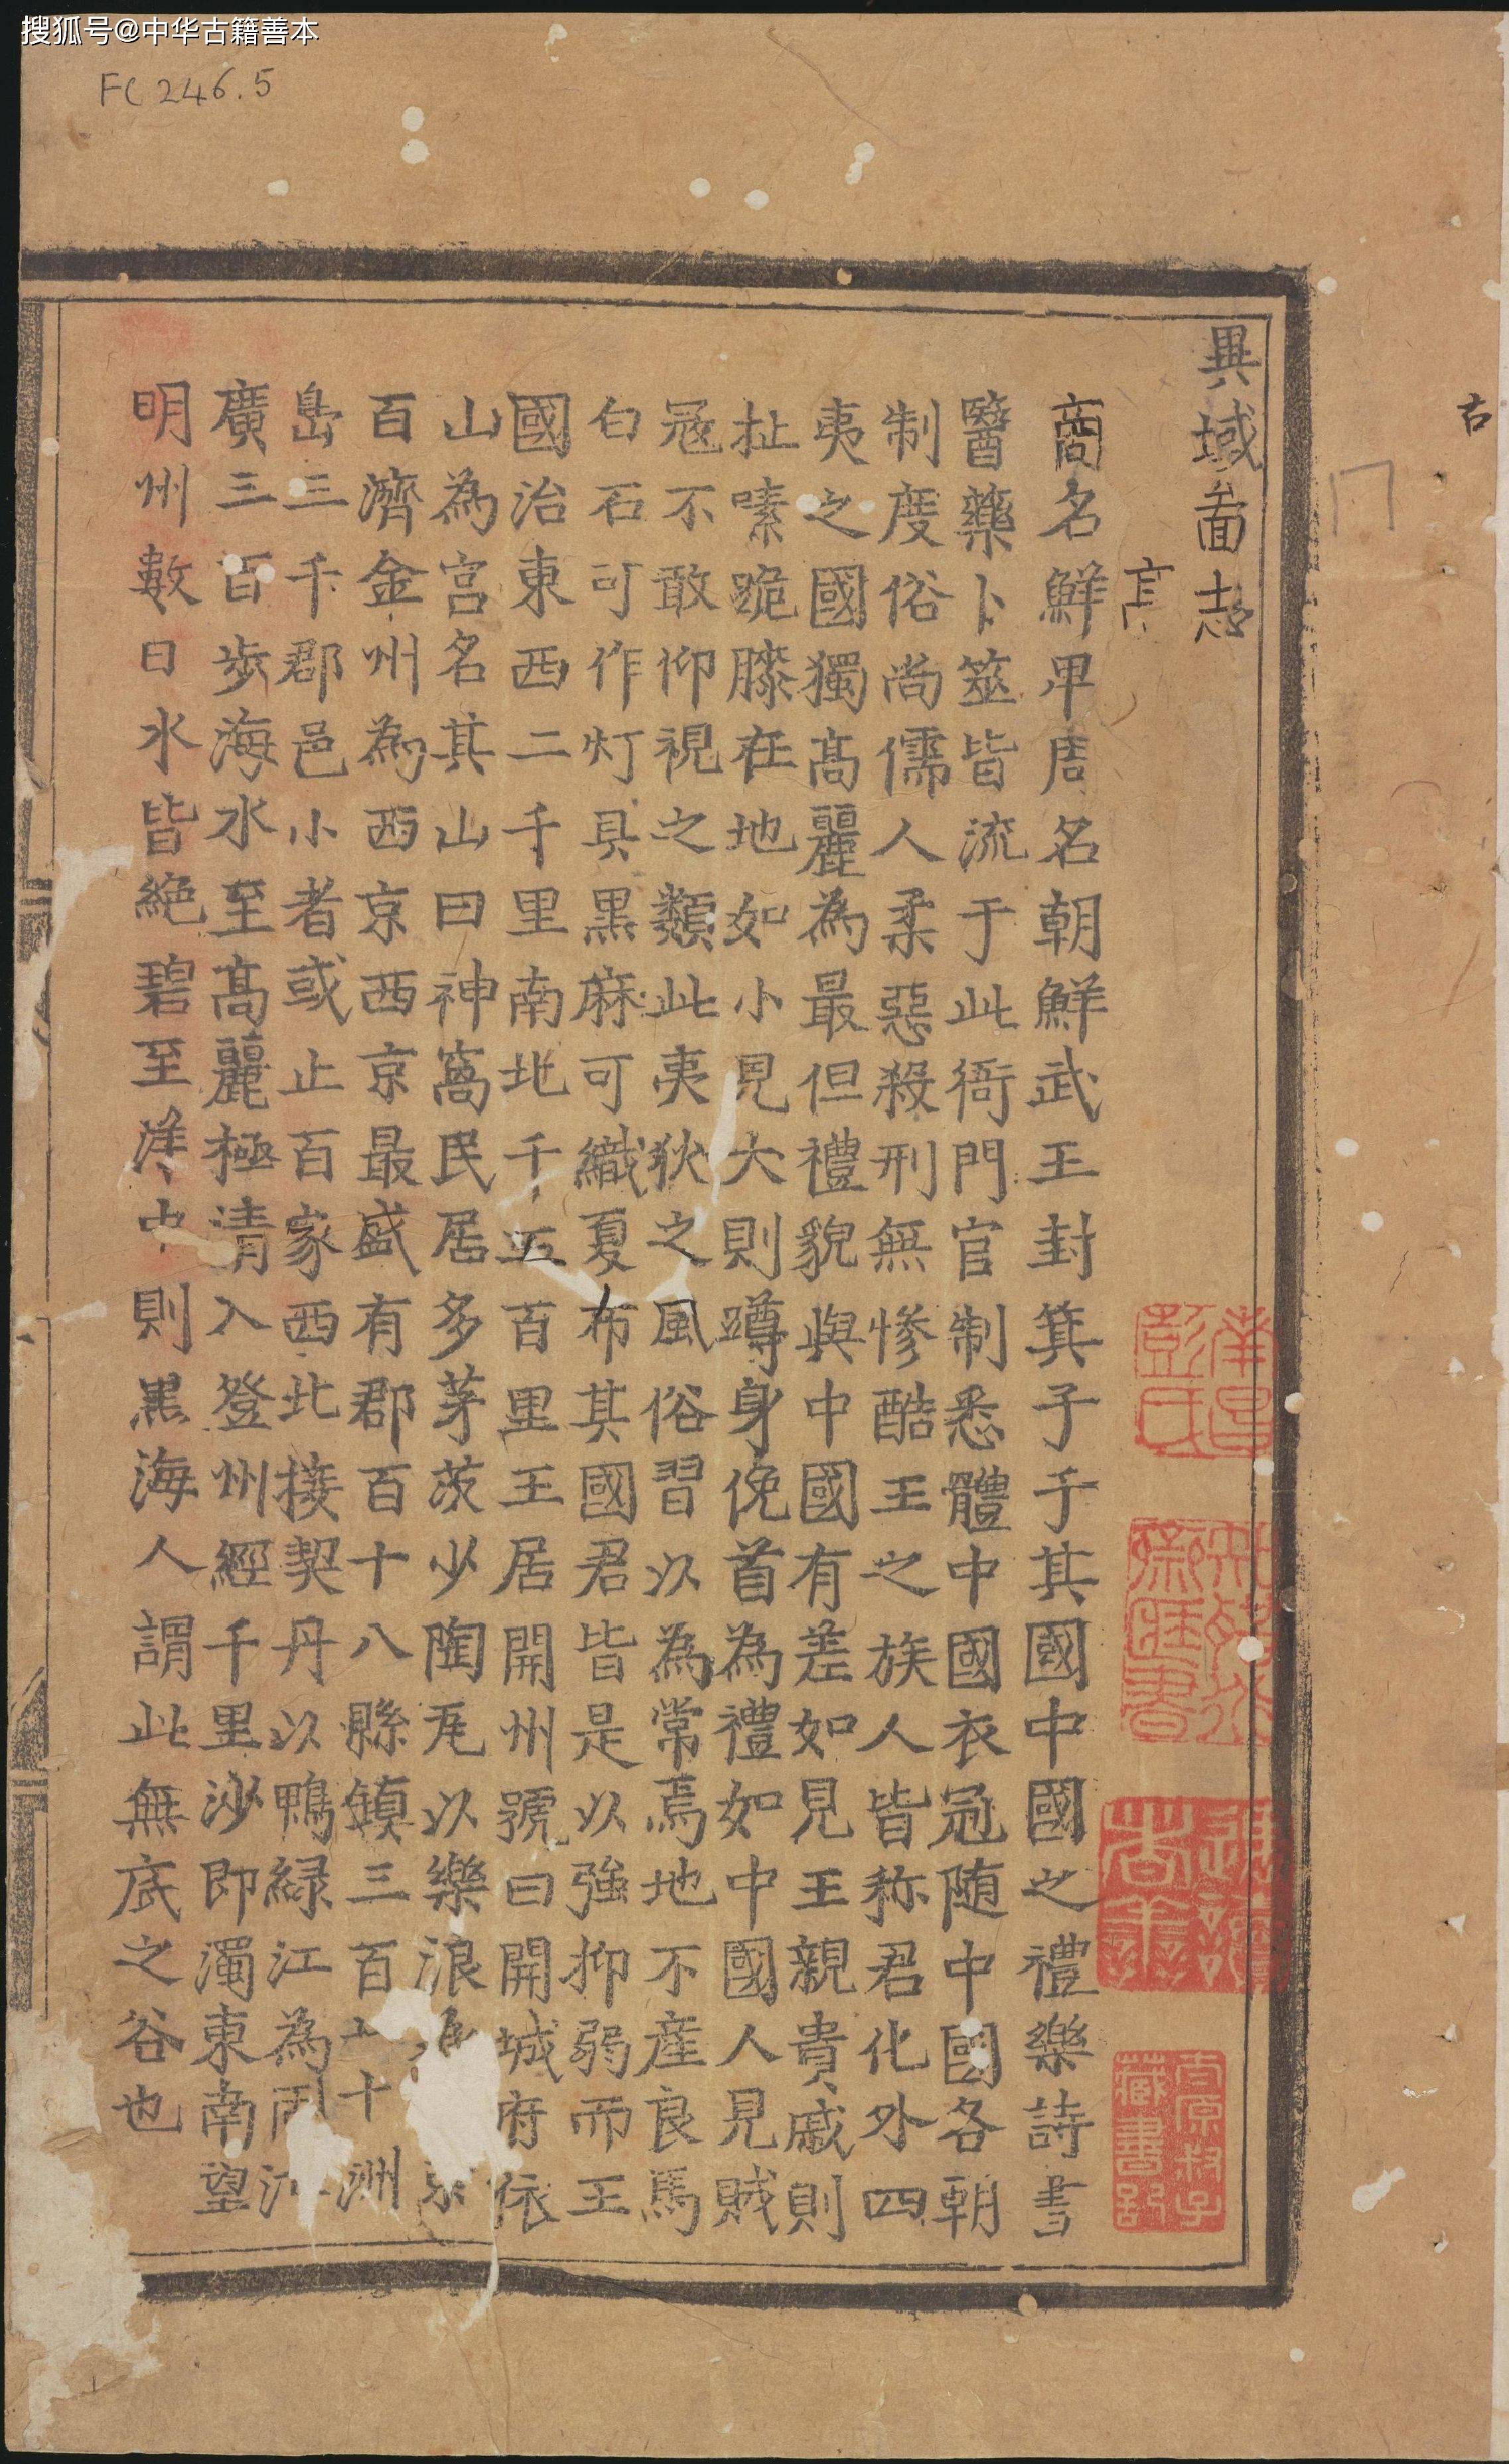 搜狐号@中华古籍善本
FC 246.5
古
異域啚志
商名鮮卑周名朝鮮武王封箕子于其國中國之禮樂詩書
醫藥卜筮皆流于此衙門官制悉體中國衣冠随中國各朝
制度俗尚儒人柔惡殺刑無慘酷王之族人皆称君化外四
夷之國獨髙麗為最但禮貌與中國有差如見王親貴戚則
扯嗉跪膝在地如小見大則蹲身俛首為禮如中國人見賊
冦不敢仰視之類此夷狄之風俗習以為常焉地不産良馬
白石可作灯具黒麻可織夏布其國君皆是以強抑弱而王
國治東西二千里南北千五百里王居開州號曰開城府依
山為宮名其山曰神窩民居多茅茨少陶瓦以樂浪
百濟金州為西京西京最盛有郡百十八縣鎮三百十洲
島三千郡邑小者或止百家西北接契丹以鴨緑江為
廣三百步海水至髙麗極清入登州經千里沙即濁東南望
明州數日水皆絶碧至洋中則黒海人謂此無底之谷也
彭氏
藏書